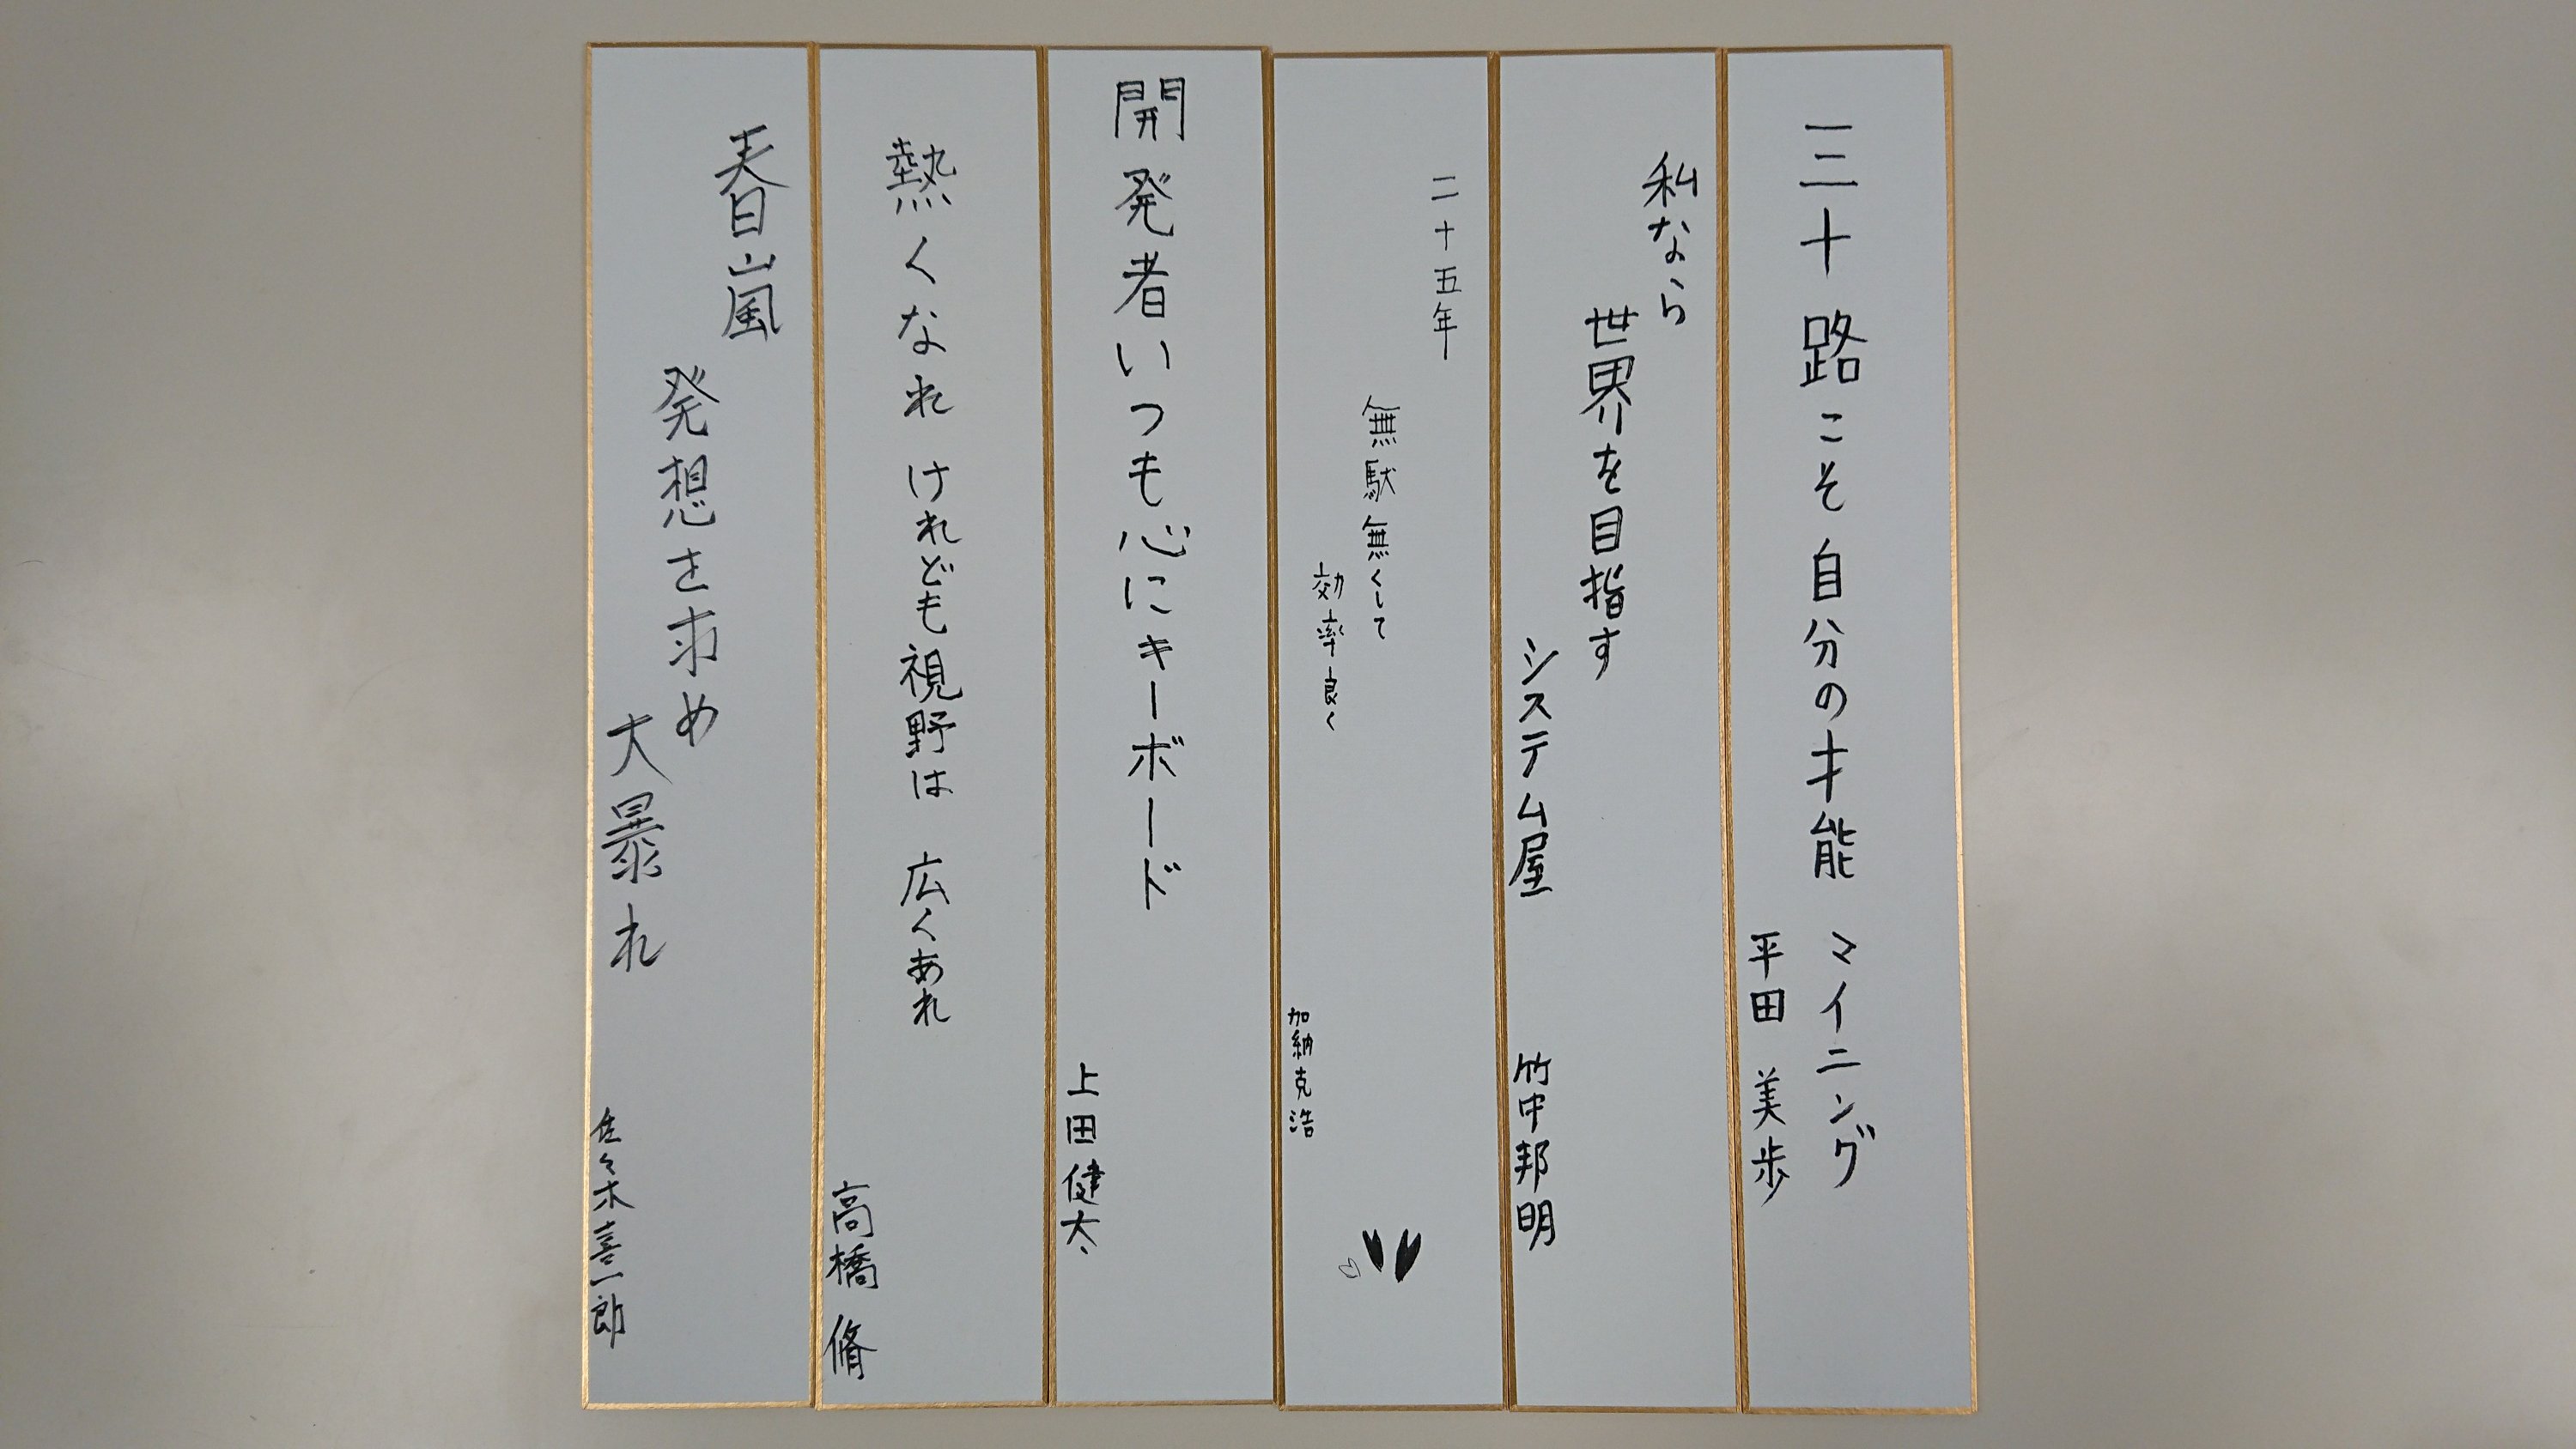 三十路こそ自分の才能マイニング
平田 美歩
私なら
世界を目指す
システム屋
竹中邦明
二十五年
無駄無くして
効率良く
加納克浩
開発者いつも心にキーボード
上田健太
熱くなれ けれども視野は 広くあれ
高橋 脩
春嵐
発想を求め
大暴れ
佐々木喜一郎